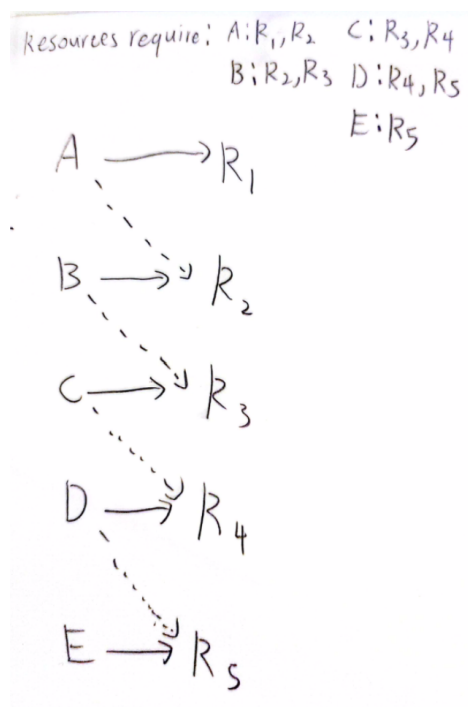 Resources require: A: R1, R2 C: R3, R4
B: R2, R3 D: R4, R5
E: R5
A R1
B R2
C R3
D R4
E R5